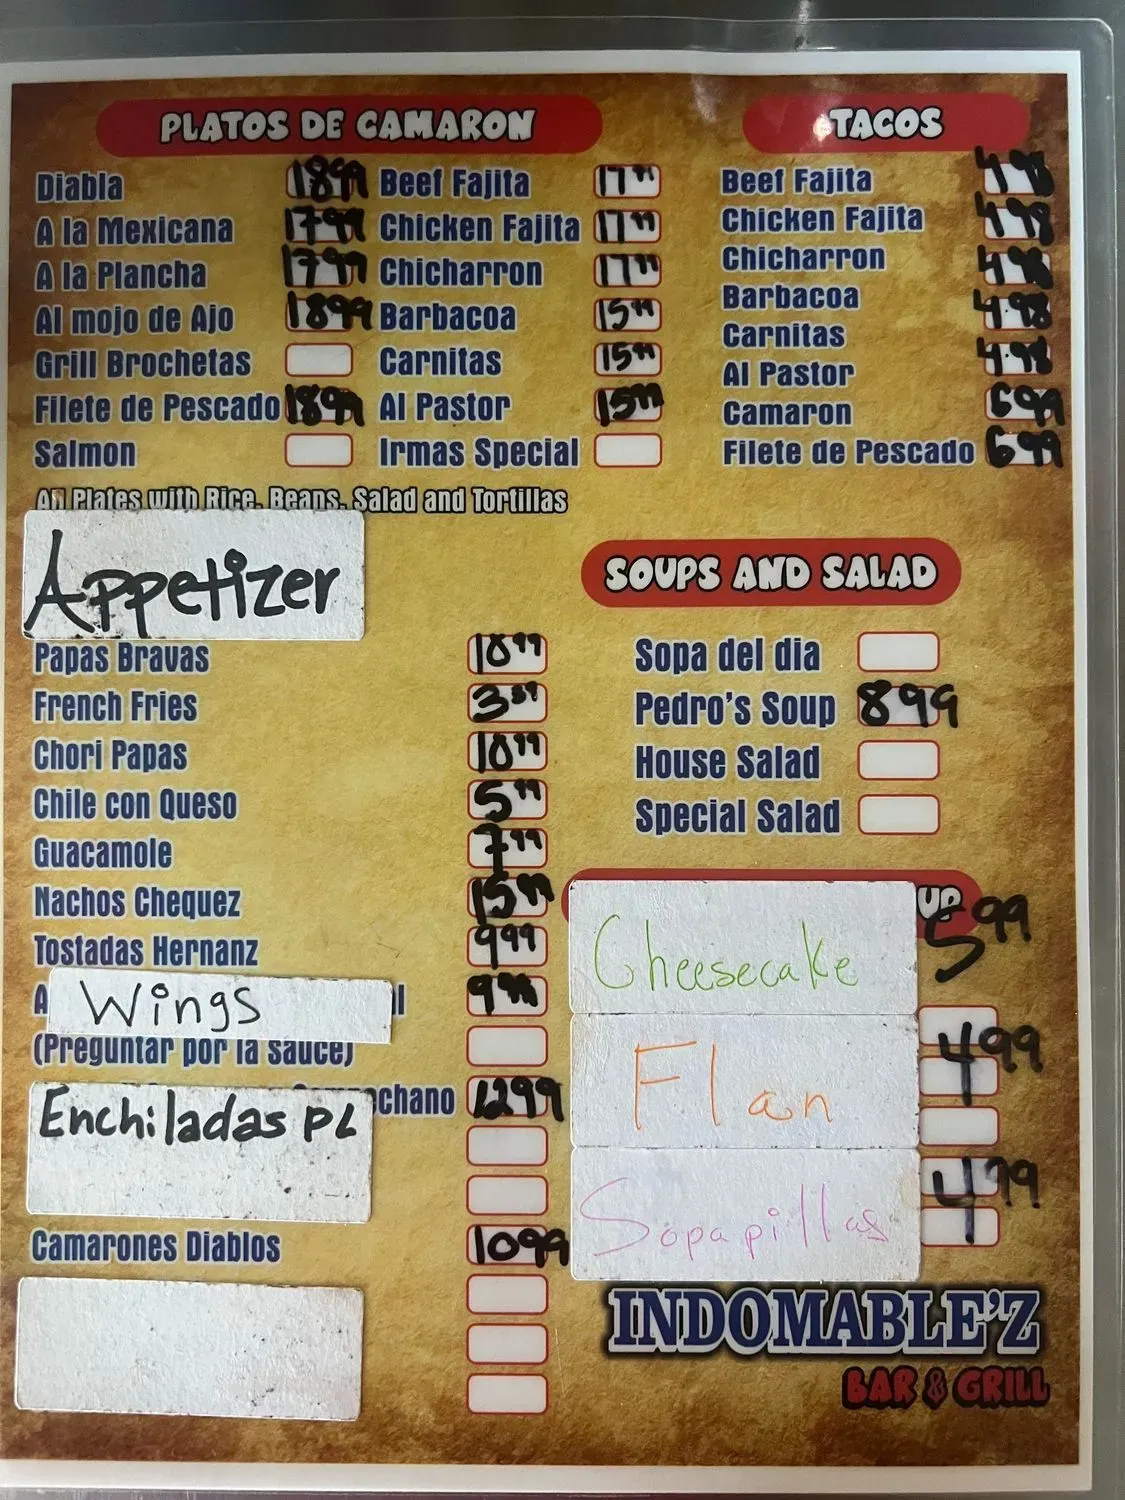 PLATOS DE CAMARON
Diabla 18 99
A la Mexicana 17 99
A la Plancha 17 99
Al mojo de Ajo 18 99
Grill Brochetas
Filete de Pescado 18 99
Salmon
Beef Fajita 17 99
Chicken Fajita 17 99
Chicharron 17 99
Barbacoa 15 99
Carnitas 15 99
Al Pastor 15 99
Irmas Special
All Plates with Rice, Beans, Salad and Tortillas
TACOS
Beef Fajita 4.98
Chicken Fajita 4.98
Chicharron 4.98
Barbacoa 4.98
Carnitas 4.98
Al Pastor
Camaron 6 99
Filete de Pescado 6 99
Appetizer
Papas Bravas 10 99
French Fries
Chori Papas 10 99
Chile con Queso 5 99
Guacamole 7 99
Nachos Chequez 15 99
Tostadas Hernanz 9 99
A Wings l 9 99
(Preguntar por la sauce)
Enchiladas PL chano 12 99
Camarones Diablos 10 99
SOUPS AND SALAD
Sopa del dia
Pedro's Soup 8 99
House Salad
Special Salad
UP
Cheesecake 5 99
Flan 4 99
Sopapillas 4 99
INDOMABLE'Z
BAR & GRILL